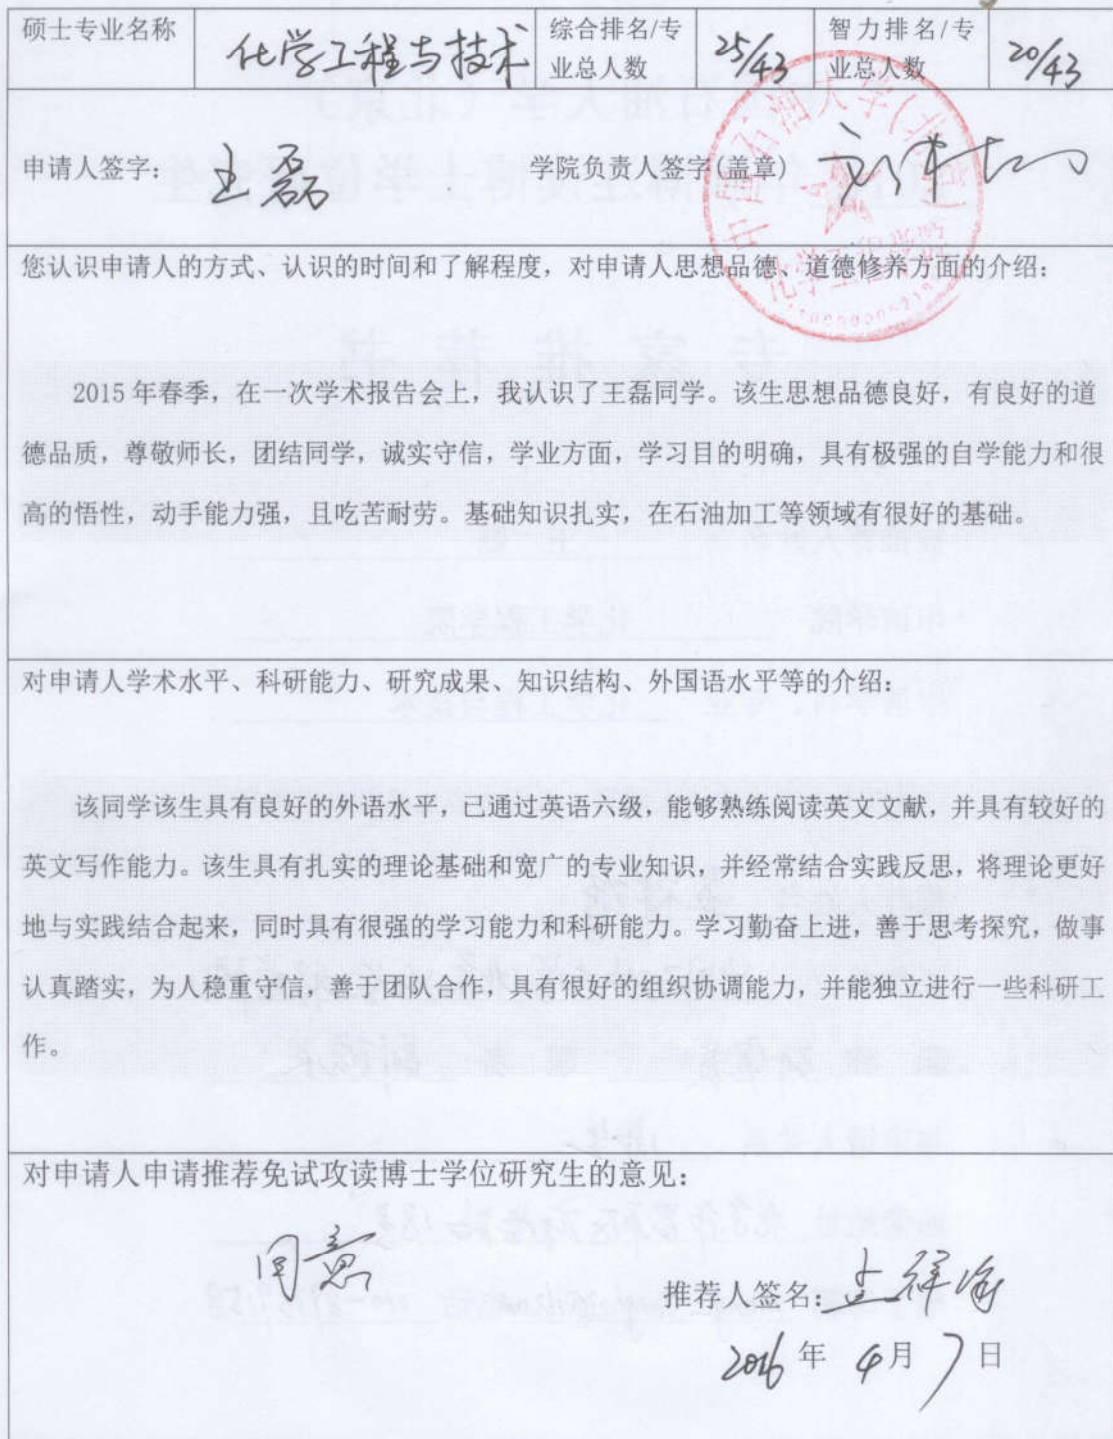 硕士专业名称 化学工程与技术 综合排名/专业总人数 25/43 智力排名/专业总人数 20/43
申请人签字: 王磊 学院负责人签字(盖章)
中国石油大学(北京)
化学工程学院
您认识申请人的方式、认识的时间和了解程度，对申请人思想品德、道德修养方面的介绍：
2015年春季，在一次学术报告会上，我认识了王磊同学。该生思想品德良好，有良好的道
德品质，尊敬师长，团结同学，诚实守信，学业方面，学习目的明确，具有极强的自学能力和很
高的悟性，动手能力强，且吃苦耐劳。基础知识扎实，在石油加工等领域有很好的基础。
对申请人学术水平、科研能力、研究成果、知识结构、外国语水平等的介绍：
该同学该生具有良好的外语水平，已通过英语六级，能够熟练阅读英文文献，并具有较好的
英文写作能力。该生具有扎实的理论基础和宽广的专业知识，并经常结合实践反思，将理论更好
地与实践结合起来，同时具有很强的学习能力和科研能力。学习勤奋上进，善于思考探究，做事
认真踏实，为人稳重守信，善于团队合作，具有很好的组织协调能力，并能独立进行一些科研工
作。
对申请人申请推荐免试攻读博士学位研究生的意见：
同意
推荐人签名:
2016年 4月 7日